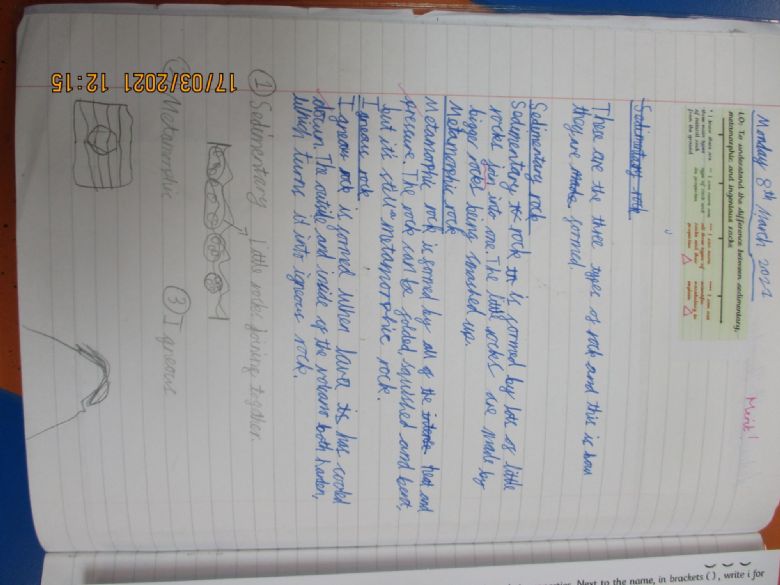 Monday 8th March 2021
LO: To understand the difference between sedimentary,
metamorphic and ingenious rocks
Merit!
Sedimentary rock
These are the three types of rock and this is how
they are formed.
Sedimentary rock
Sedimentary rock is formed by lots of little
rocks join into one. The little rocks are made by
bigger rocks being smashed up.
Metamorphic rock
Metamorphic rock is formed by all of the intense heat and
pressure. The rock can be folded, squished and bent,
but it's still metamorphic rock.
Igneous rock
Igneous rock is formed when lava has cooled
down. The outside and inside of the volcano both harden,
which turns it into igneous rock.
① Sedimentary Little rocks joining together.
② Metamorphic
③ Igneous
17/03/2021 12:15
Next to the name, in brackets ( ), write i for